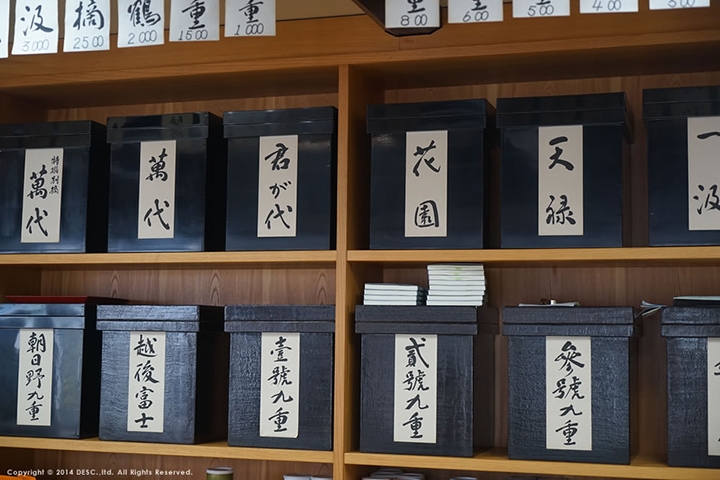 汲
3000
摘
2500
鶴
2000
重
1500
重
1000
800
600
500
400
特撰別撰
萬代
萬代
君が代
花園
天禄
一汲
朝日野九重
越後富士
壹號九重
貳號九重
參號九重
Copyright © 2014 DESC.,ltd. All Rights Reserved.